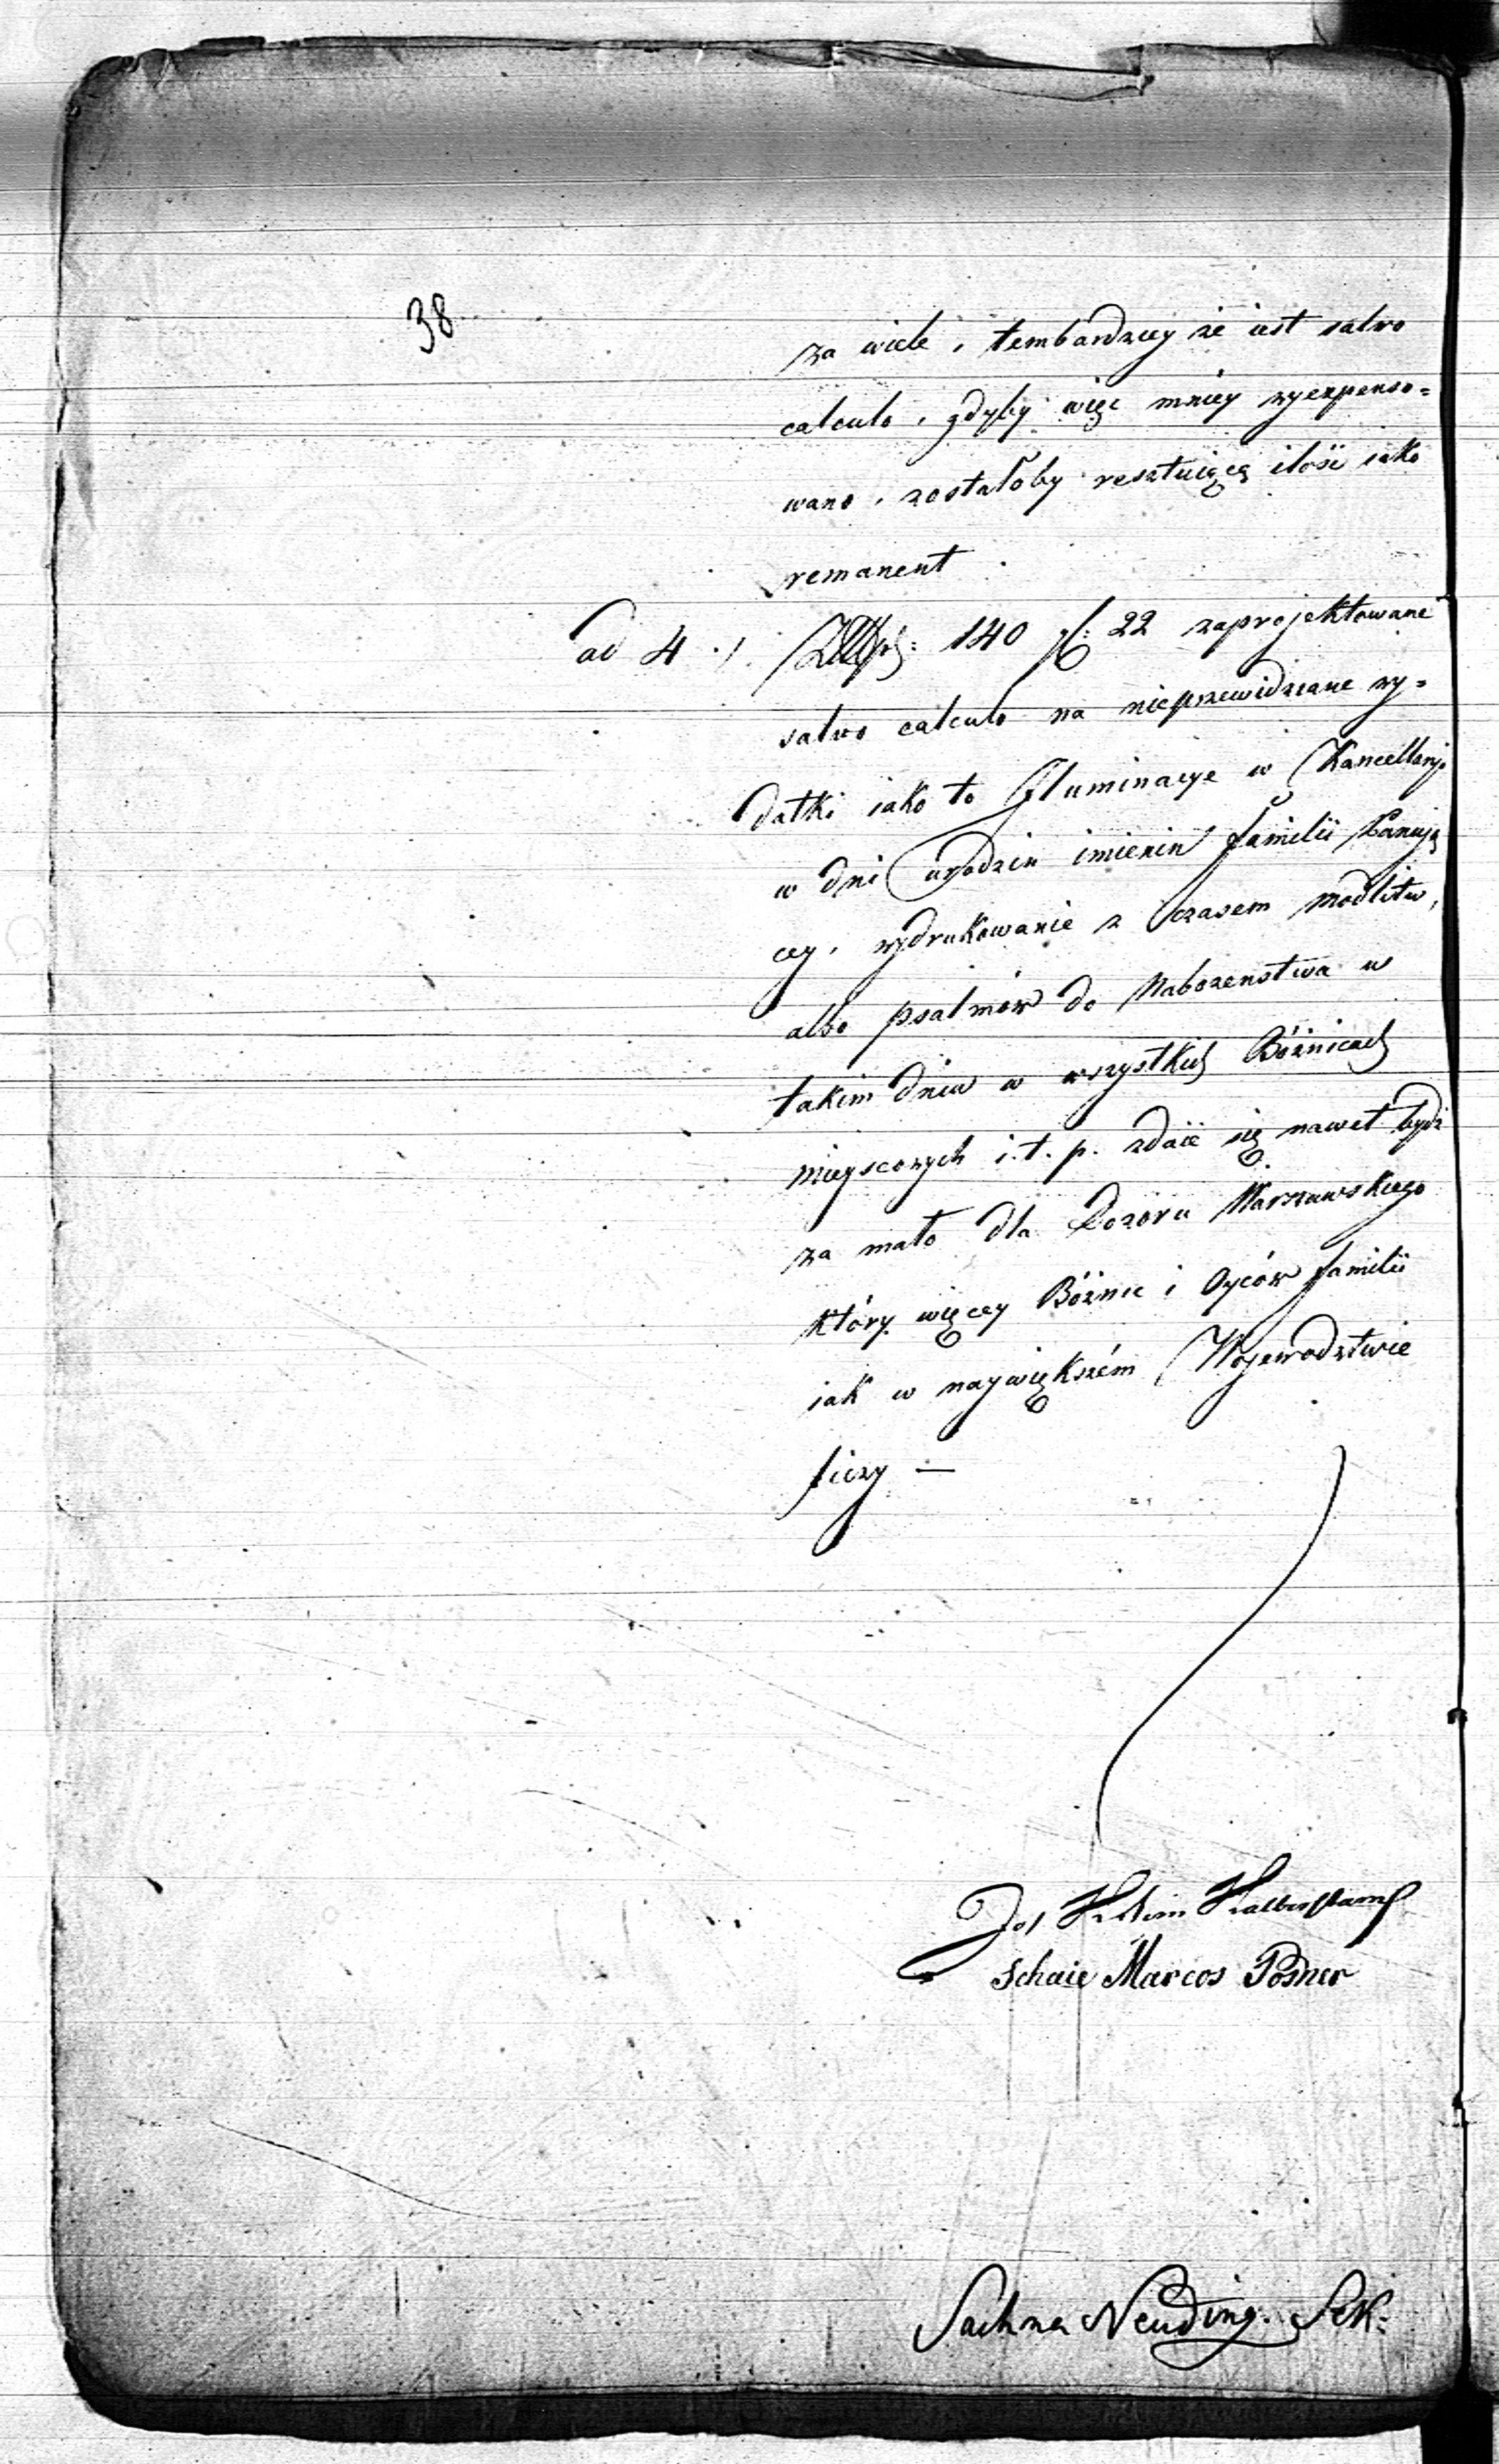 38
za wiele, tembardziey że iest salvo
calculo, gdyby więc mniey wyexpenso=
wano, zostałoby resztuiącą ilość iako
remanent.
ad 4 ./. 140 gr: 22 zaprojektowane
salvo calculo na nieprzewidziane wy=
datki iako to Illuminacye w Kancellaryi
w dni urodzin imienin familii Panują
cey, wydrukowanie z czasem modlitw,
albo psalmów do Nabozenstwa w
takim dniu w wszystkich Bóżnicach
mieyscowych i.t.p. zdaie się nawet bydź
za mało dla Dozoru Warszawskiego
który więcey Bóżnic i Oyców familii
iak w naywiększém Wojewodztwie
liczy —
Jos Halberstam
Schaie Marcos Posner
Sachna Neuding. Sek: